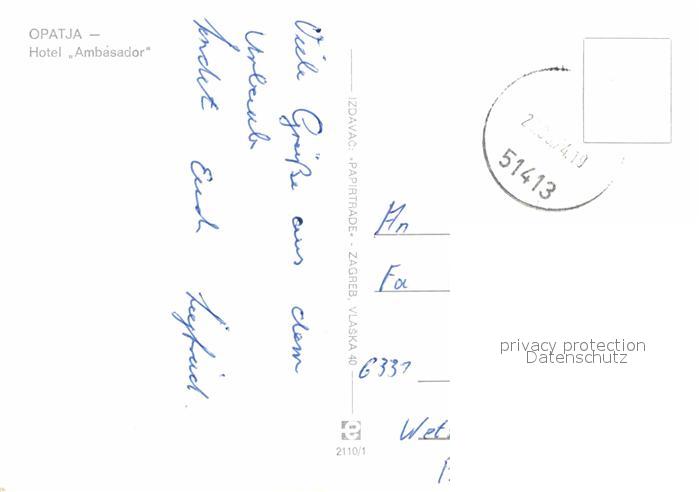 OPATJA —
Hotel „Ambasador"
Viele Grüße aus dem
Urlaub
sendet Euch Siegfried.
IZDAVAČ: »PAPIRTRADE« - ZAGREB, VLAŠKA 40
2110/1
51413
Hn
Fa
6331
Wet
privacy protection
Datenschutz